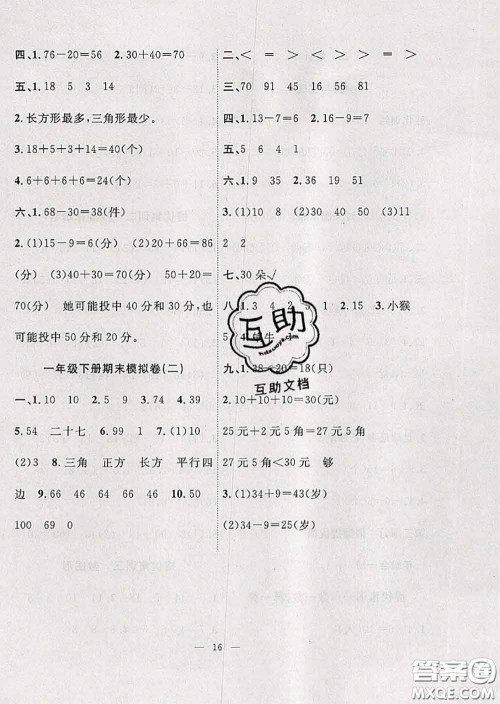 四、1.76-20=56 2.30+40=70
五、1.18 5 3 14
2.长方形最多,三角形最少。
3.18+5+3+14=40(个)
4.6+6+6+6=24(个)
六、1.68-30=38(件)
2.(1)15-9=6(分) (2)20+66=86
(分) (3)40+30=70(分) 50+20=
70(分) 她可能投中40分和30分,也
可能投中50分和20分。
一年级下册期末模拟卷(二)
一、1.10 2.5 9 3.74 4.39
5.54 二十七 6.99 1 7.(1)10
(2)3 8.三角 正方 长方 平行四
边 9.46 47 48 44 10.50
100 69 0
二、< = > < > > > <
三、70 91 45 16 56 81
四、1.13-7=6 2.16-9=7
五、5 6 4 1
六、1.9 35 2.36 19 51
3.(1)10 8 (2)30 40 50 (3)11
2 2
七、30朵√
八、1.3 4 2 5 1 3.小猴
九、1.38-20=18(只)
2.10+10+10=30(元)
25元+2元5角=27元5角
27元5角<30元 够
3.(1)34+9=43(岁)
(2)34-9=25(岁)
16
互助
互助文档
答案圈
MXQE.COM